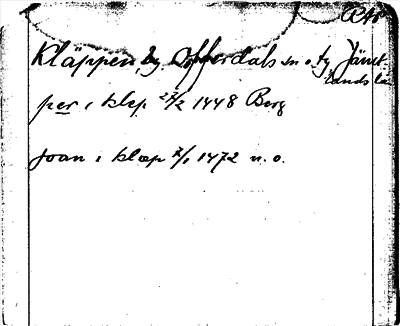 RAÖ
Kläppen, by, Offerdals sn o. tg Jämt-
lands lä
per i klep 27/2 1448 Berg
Joan i klæp 7/1 1472 n. o.